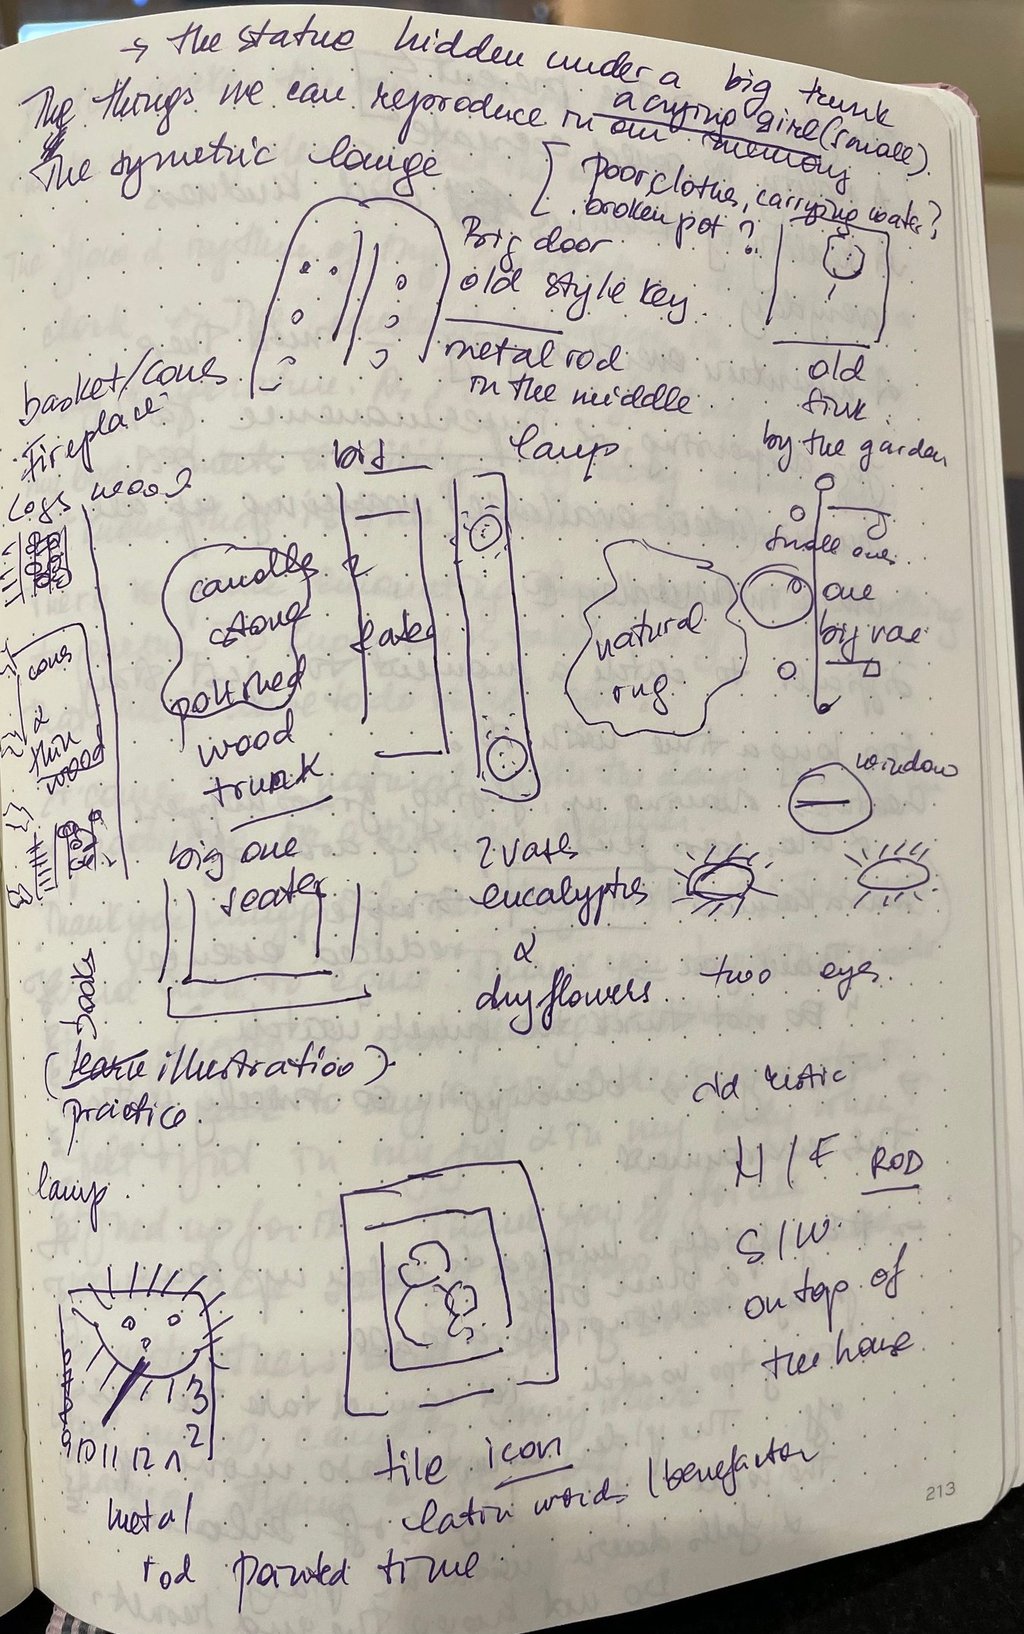 → the statue hidden under a big trunk
a crying girl (small).
The things we can reproduce in our memory
The symetric lounge
[ poor clothes, carrying water?
broken pot ?
Big door
old style key
metal rod
in the middle
old
sink
by the garden
basket/cones
fireplace
Logs wood
lamp
candles
stone
polished
wood
trunk
natural
rug
small ones
one
big vase
cones
&
thin
wood
window
big one
seater
2 vases
eucalyptus
&
dry flowers
two eyes
books
(illustration)
practice.
old rustic
N/E ROD
S/W
on top of
the house
lamp.
3
2
9 10 11 12 1
metal
rod
tile icon
latin words / benefactor
time
213